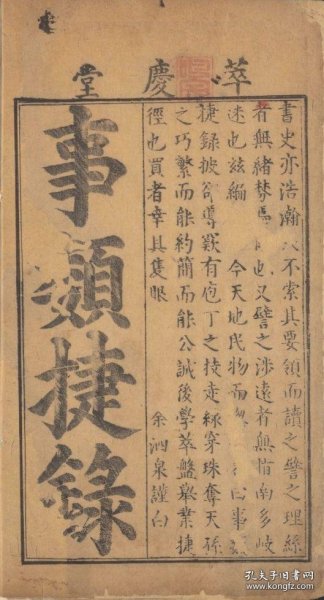 萃慶堂
書史亦浩瀚不索其要領而讀之譬之理絲
者無緒棼焉也又譬之涉遠者無指南多岐
迷也茲編 今天地民物而事類
捷錄披郤導窾有庖丁之技走綠穿珠奪天孫
之巧繁而能約簡而能公誠後學萃盤舉業捷
徑也買者幸具隻眼
余泗泉謹白
事類捷錄
孔夫子旧书网